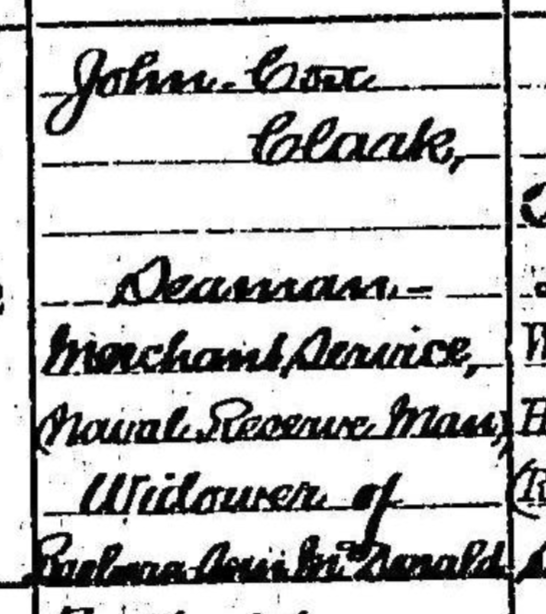 John Cox
Claak,
Seaman –
Merchant Service,
(Naval Reserve Man)
Widower of
Barbara Ann McDonald